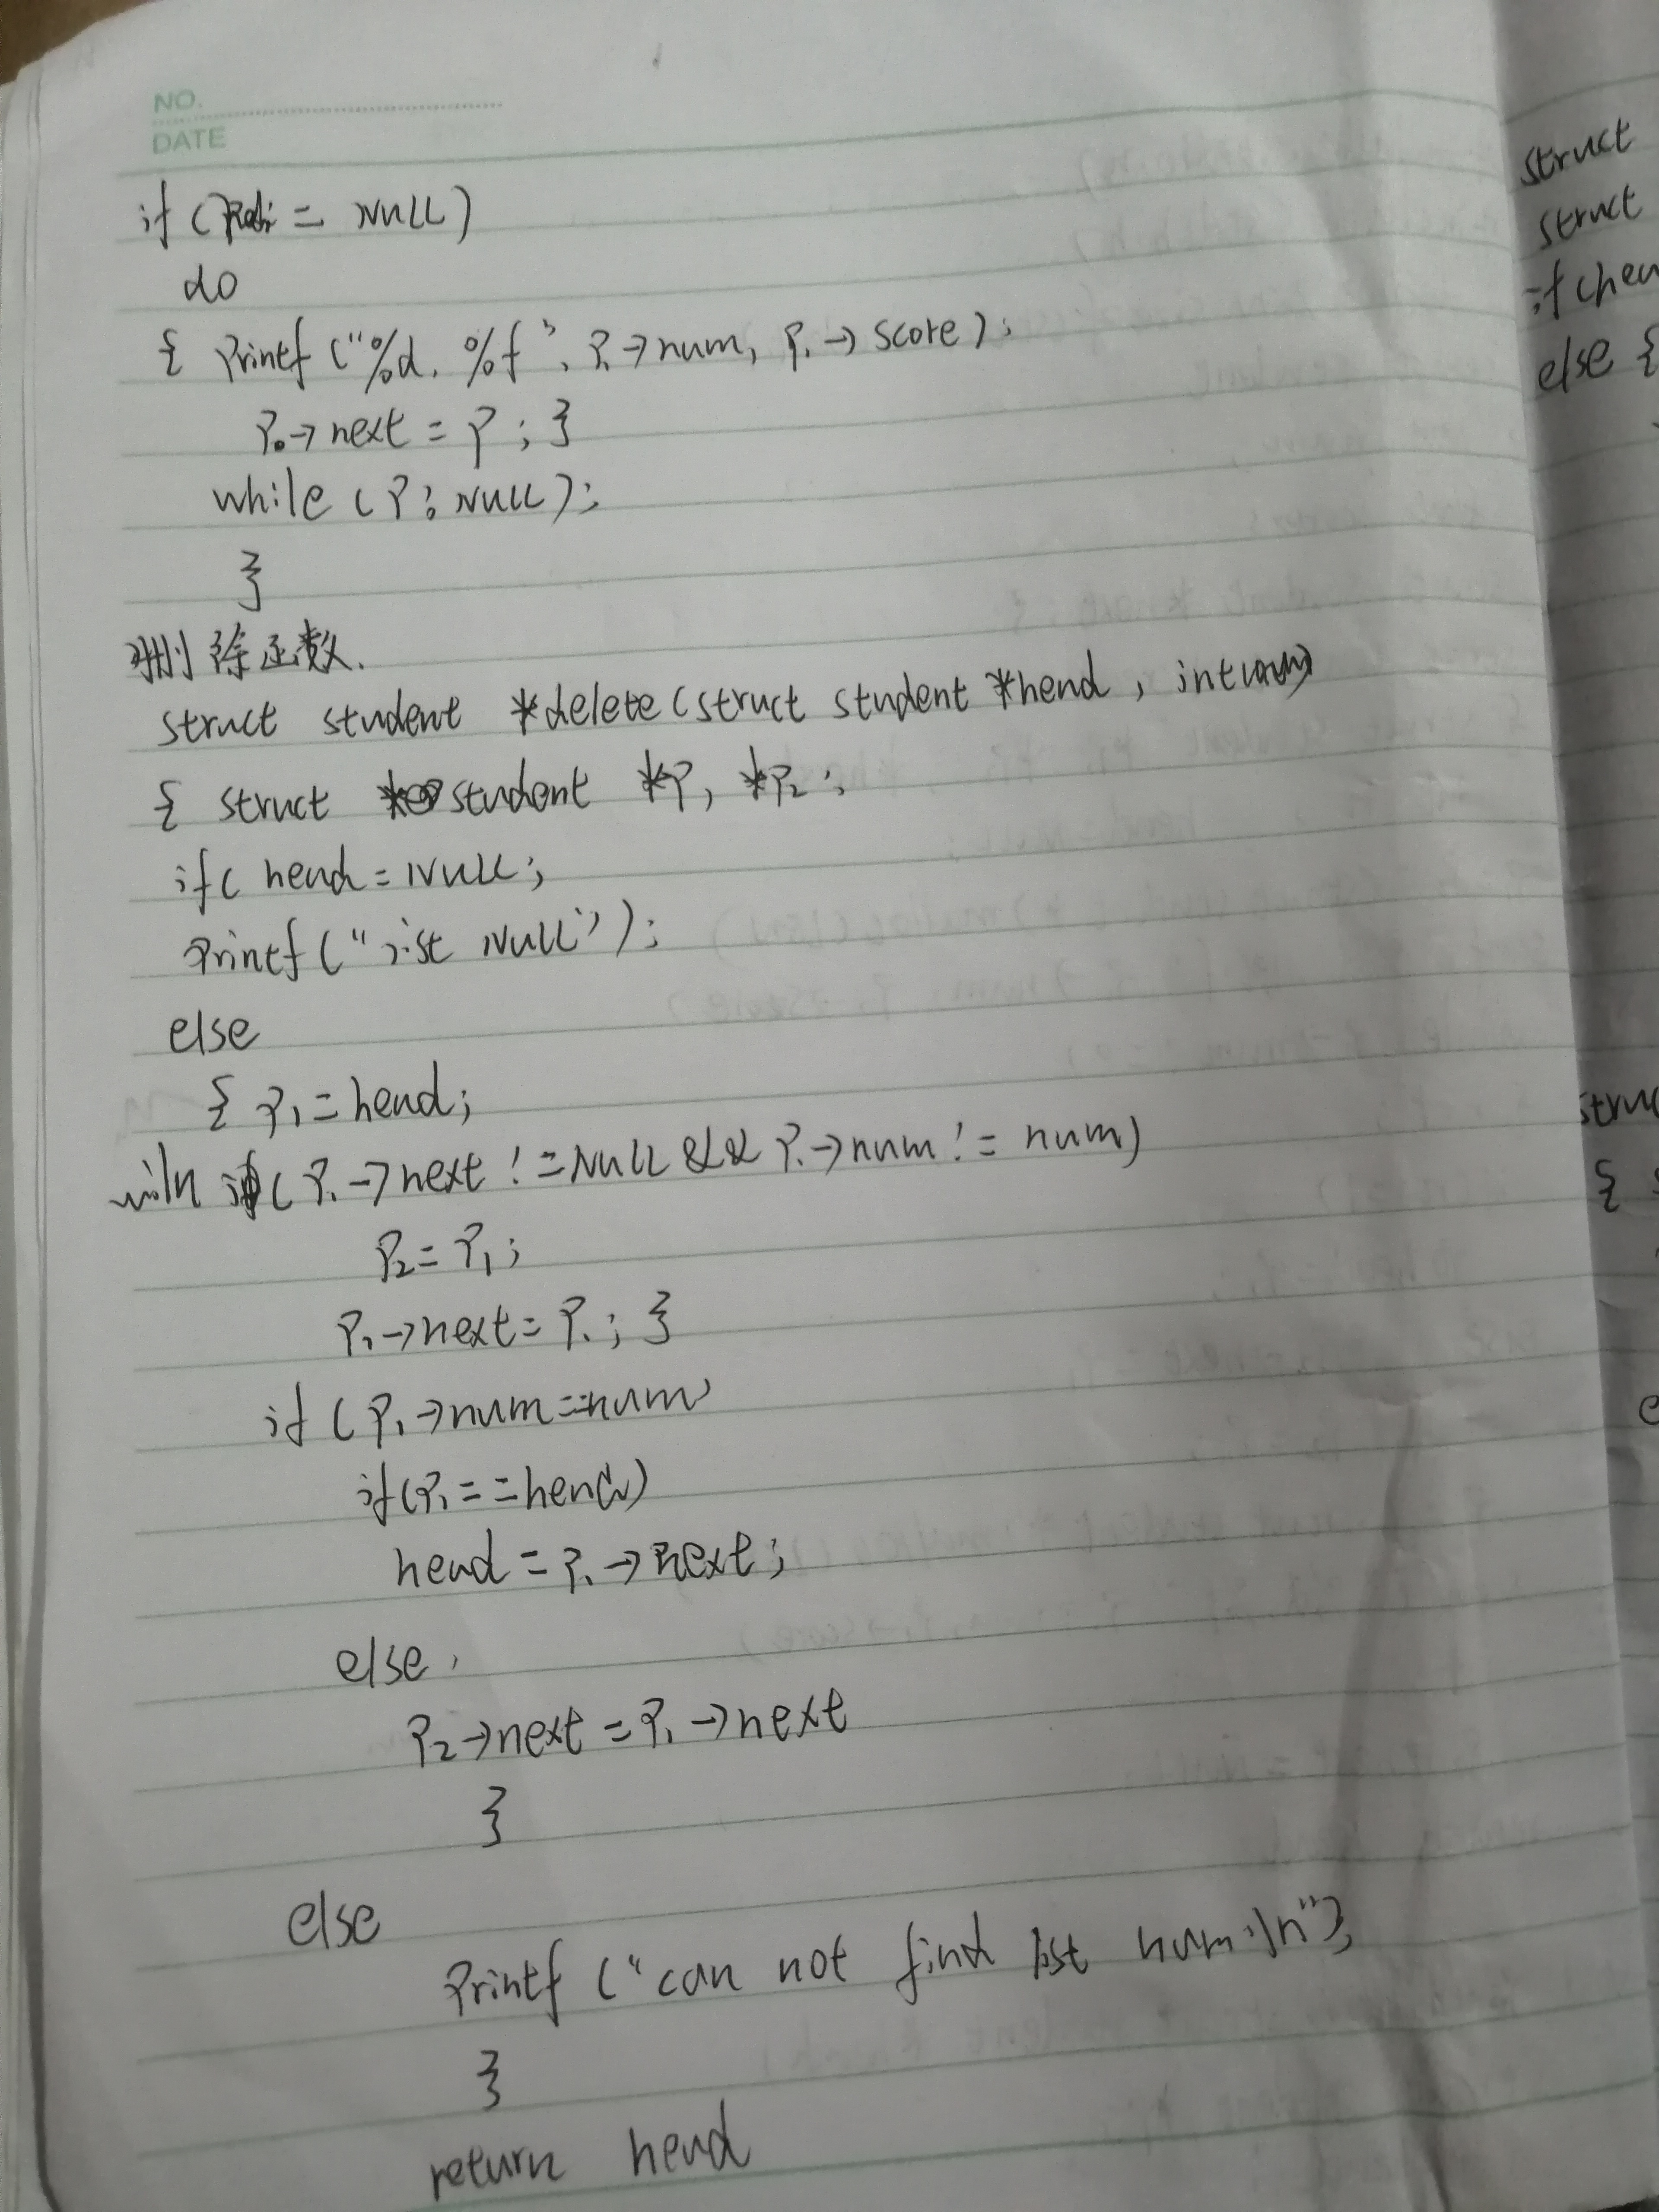 NO.
DATE
if ( = NULL)
do
{ printf ("%d, %f", P1→num, P1→score);
P0→next = P ; }
while (P; NULL);
}
删除函数.
struct student *delete (struct student *head, int num)
{ struct student *P, *P2;
if( head = NULL;
printf ("list NULL");
else
{ P1 = head;
( P1→next != NULL && P1→num != num)
P2 = P1;
P1→next = P1; }
if (P1→num==num
if(P1 == head)
head = P1→next;
else
P2→next = P1→next
}
else
printf ("can not find list num.\n");
}
return head
struct
struct
if (hea
else {
struc
{